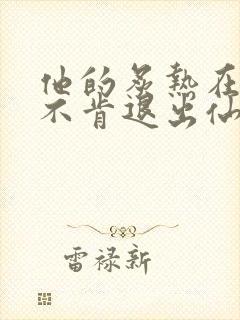 他的炙热在
不肯退出仙
雷禄新